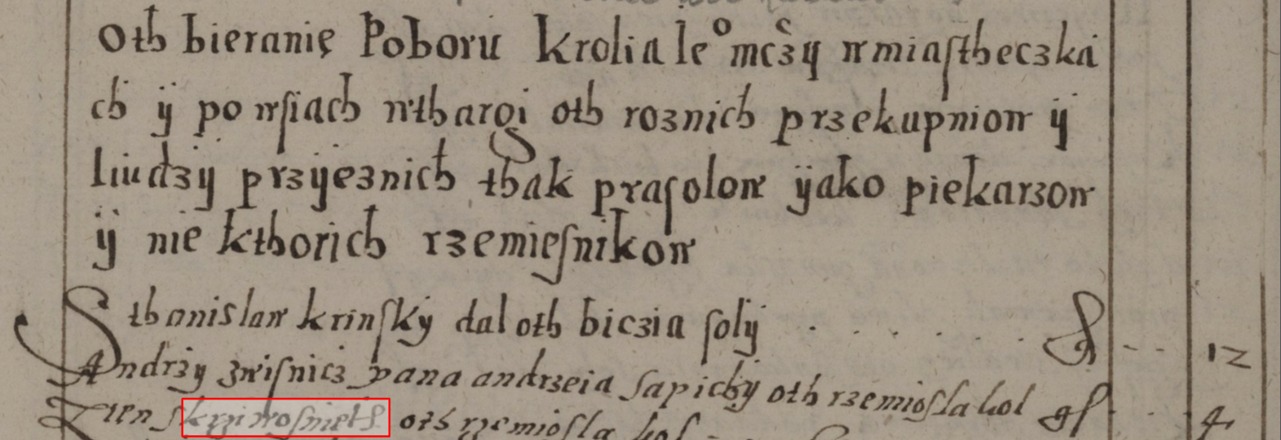 Oth bieranię Poboru krolia Ie° mczy w miastheczka
ch ÿ po wsiach wthargi oth roznich przekupniow ÿ
liudzy przyieznich thak prasolow ÿako piekarzow
ÿ nie kthorich rzemiesnikow
Sthanislaw krinsky dal oth biczia soly
Andrzy zwisnicz pana andrzeia sapichy oth rzemiosla kol gſ 12
oth rzemiosla kol gſ 4